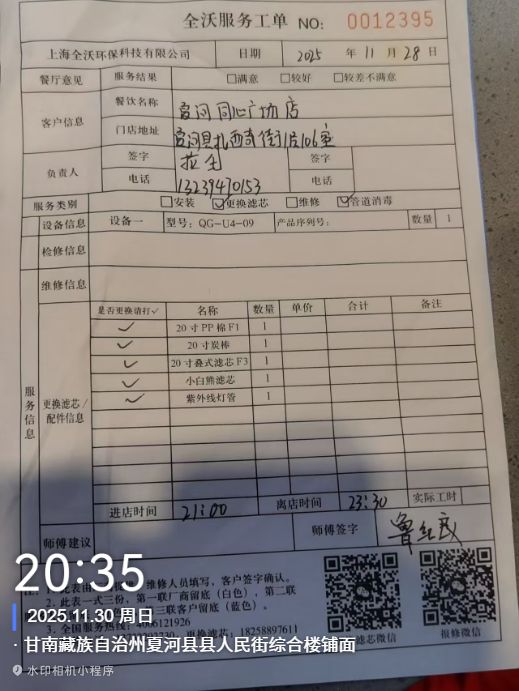 全沃服务工单 NO: 0012395
上海全沃环保科技有限公司 日期 2025 年 11 月 28 日
餐厅意见 服务结果 □满意 □较好 □较差不满意
客户信息 餐饮名称 夏河同心广场店
门店地址 夏河县扎西奇街1层106室
负责人 签字 签字
电话 13239470153 电话
服务类别 □安装 ☑更换滤芯 □维修 ☑管道消毒
设备信息 设备一 型号: QG-U4-09 产品序列号: 数量 1
检修信息
维修信息
服务信息 更换滤芯/配件信息
是否更换请打✓ 名称 数量 单价 合计 备注
✓ 20寸PP棉F1 1
✓ 20寸炭棒 1
✓ 20寸叠式滤芯F3 1
✓ 小白熊滤芯 1
✓ 紫外线灯管 1
进店时间 21:00 离店时间 23:30 实际工时
师傅建议 师傅签字
维修人员填写，客户签字确认。
2、此表一式三份，第一联厂商留底（白色），第二联
三联客户留底（蓝色）。
3、全国服务热线: 4006121926
更换滤芯: 18258897611
滤芯微信 报修微信
20:35
2025.11.30 周日
· 甘南藏族自治州夏河县县人民街综合楼铺面
水印相机小程序